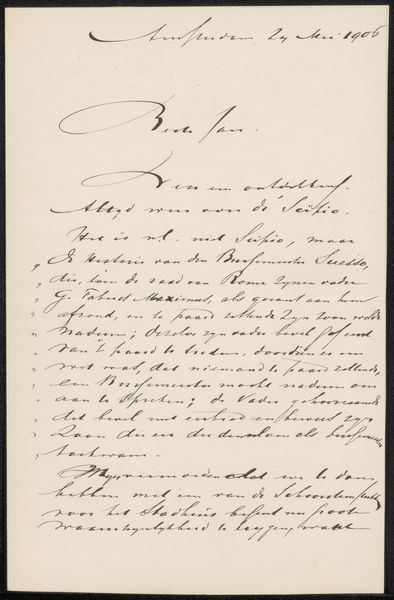 Amsterdam 29 Mei 1906
Beste Jan.
een ontdekking.
Altyd weer over de Scipio.
Het is nl. niet Scipio, maar
„ De Historie van den Burgemeester Suesso,
„ die, toen de raad van Rome zynen vader
„ G. Fabius Maximus, als gezant aan hem
„ afzond, en te paard zittende zyn zoon wilde
„ naderen; dezelve zyn vader bevel gaf eerst
„ van 't paard te treden, doordien er een
„ wet was, dat niemand te paard zittende,
„ een Burgemeester mocht naderen om
„ aan te spreken; de Vader gehoorzaamde
„ dat bevel met eerbied en bewees zyn
„ Zoon die eer die denzelven als burgemeester
„ toekwam.
Myn vermoeden dat we te doen
hebben met een van de Schoorsteenstukken
voor het Stadhuis begint een groote
waarschynlykheid te krygen, want